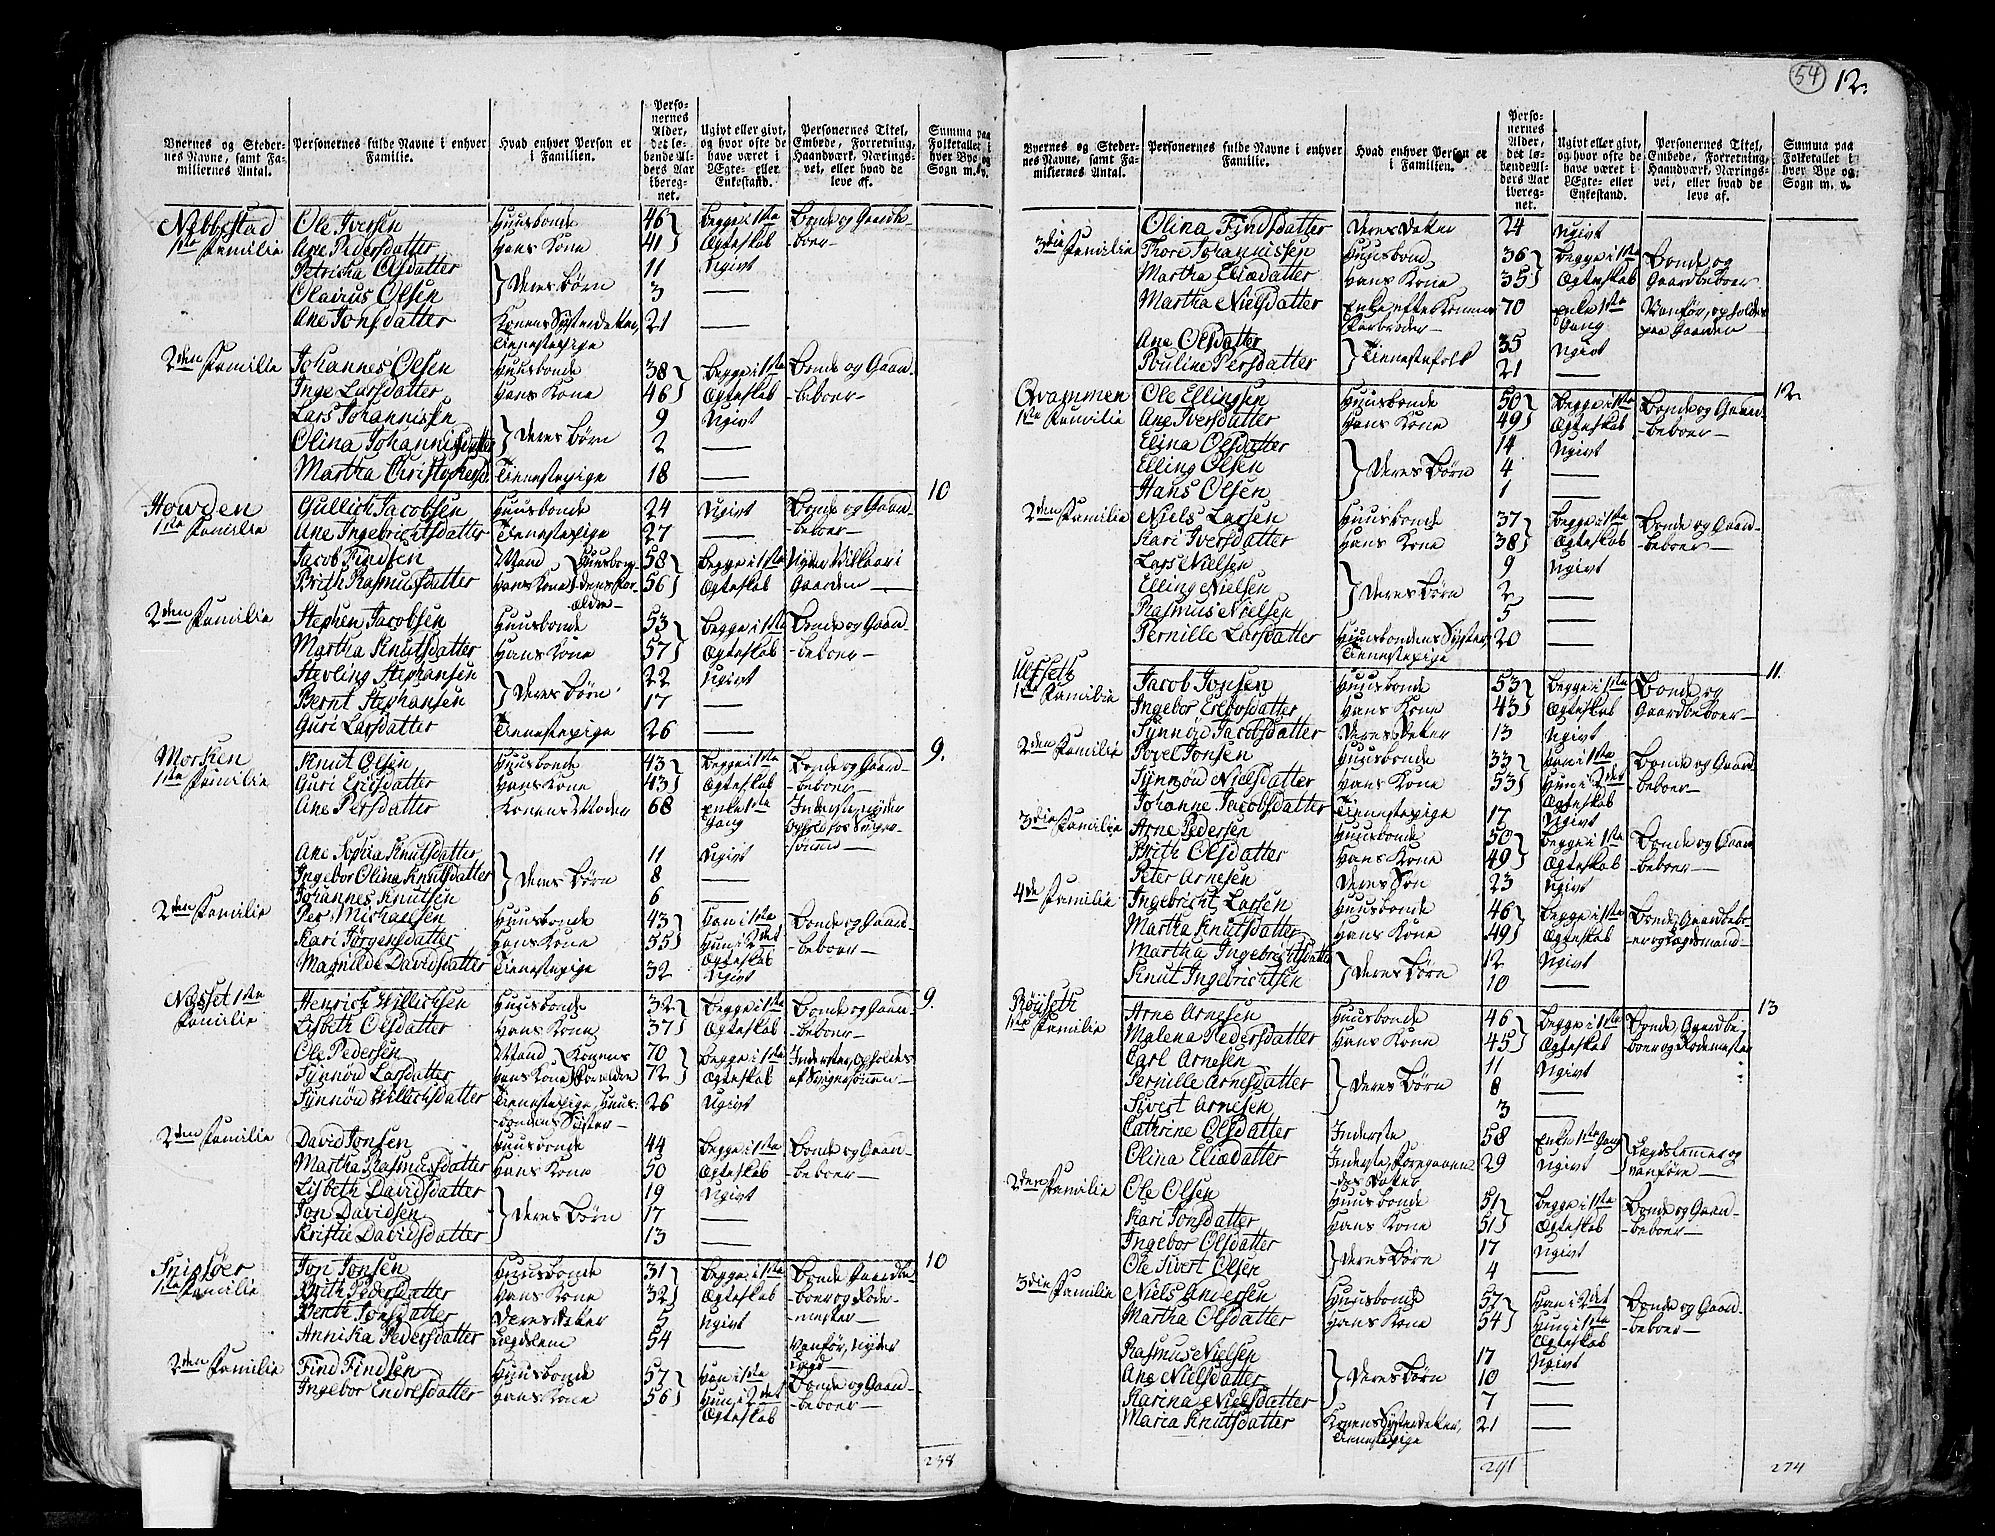 54 12.
Byernes og Stedernes Navne, samt Familiernes Antal. | Personernes fulde Navne i enhver Familie. | Hvad enhver Person er i Familien. | Personernes Alder, det løbende Alders Aar iberegnet. | Ugivt eller givt, og hvor ofte de have været i Ægte- eller Enkestand. | Personernes Titel, Embede, Forretning, Haandværk, Næringsvei, eller hvad de leve af. | Summa paa Folketallet i hver Bye og Sogn m. v.
Nebbestad Ole Iversen Huusbonde 46 begge i 1ste Bonde og Gaard-
1ste Familie Ane Pedersdatter Hans Kone 41 Ægteskab beboer
Petricka Olsdatter 11 Ugivt
Olairus Olsen Deres Børn 3 —
Ane Jonsdatter Konens Søsterdatter, 21 —
Tienestepige
2den Familie Johannes Olsen Huusbonde 38 begge i 1ste Bonde og Gaard-
Inge Larsdatter Hans Kone 46 Ægteskab beboer
Lars Johannissen 9 Ugivt
Olina Johannisdatter Deres Børn 2 —
Martha Christophersd. Tienestepige 18 — 10
Howden Gullich Jacobsen Huusbonde 24 Ugivt Bonde og Gaard-
1ste Familie Ane Ingebrichtsdatter Tienestepige 27 — beboer
Jacob Findsen Mand Huusbon- 58 begge i 1ste Nyder Vilkaar i
Brith Rasmusdatter Hans Kone dens For- 56 Ægteskab Gaarden
ældre
2den Familie Stephen Jacobsen Huusbonde 53 begge i 1ste Bonde og Gaard-
Martha Knutsdatter Hans Kone 57 Ægteskab beboer
Stephansen 22 Ugivt
Bernt Stephansen Deres Børn 17 —
Guri Larsdatter Tienestepige 26 — 9.
Morken Knut Olsen Huusbonde 43 begge i 1ste Bonde og Gaard-
1ste Familie Guri Ericsdatter Hans Kone 43 Ægteskab beboer
Ane Persdatter Konens Moder 68 Enke 1ste Inderste, nyder
Gang Ophold hos Sviger-
sønnen
Ane Sophia Knutsdatter 11 Ugivt
Ingebor Olina Knutsdatter Deres Børn 8 —
Johannes Knutsen 6 —
2den Familie Per Michaelsen Huusbonde 43 Han i 1ste Bonde og Gaard-
Kari Jørgensdatter Hans Kone 55 Hun i 2det beboer
Ægteskab
Magnilde Davidsdatter Tienestepige 32 Ugivt 9.
Nesset 1ste Henrich Willichsen Huusbonde 32 begge i 1ste Bonde og Gaard-
Familie Lisbeth Olsdatter Hans Kone 37 Ægteskab beboer
Ole Pedersen Mand Konens 70 begge i 1ste Inderster, Opholdes
Synnøv Larsdatter Hans Kone Forældre 72 Ægteskab af Svigersønnen
Synnøv Willichsdatter Tienestepige, Huus- 26 Ugivt
bondens Søster
2den Familie David Jonsen Huusbonde 44 begge i 1ste Bonde og Gaard-
Martha Rasmusdatter Hans Kone 50 Ægteskab beboer
Lisbeth Davidsdatter 19 Ugivt
Jon Davidsen Deres Børn 17 —
Kristie Davidsdatter 13 — 10
Snipsøer Jon Jonsen Huusbonde 31 begge i 1ste Bonde Gaardbe-
1ste Familie Brith Pedersdatter Hans Kone 32 Ægteskab boer og Rode-
Berith Jonsdatter Deres Datter 5 Ugivt mester
Annika Pedersdatter Lægdslem 54 — Vanfør, Nyder
Lægd
2den Familie Find Findsen Huusbonde 57 Han i 1ste Bonde og Gaard-
Ingebor Endresdatter Hans Kone 56 Hun i 2det beboer
Ægteskab
238
Byernes og Stedernes Navne, samt Familiernes Antal. | Personernes fulde Navne i enhver Familie. | Hvad enhver Person er i Familien. | Personernes Alder, det løbende Alders Aar iberegnet. | Ugivt eller givt, og hvor ofte de have været i Ægte- eller Enkestand. | Personernes Titel, Embede, Forretning, Haandværk, Næringsvei, eller hvad de leve af. | Summa paa Folketallet i hver Bye og Sogn m. v.
Olina Findsdatter Deres Datter 24 Ugivt
3die Familie Thore Johannissen Huusbond 36 begge i 1ste Bonde og
Martha Eliædatter Hans Kone 35 Ægteskab Gaardbeboer
Martha Nielsdatter Enke efter Konens 70 Enke 1ste Vanfør, opholdes
Farbroder Gang paa Gaarden
Ane Olsdatter 35 Ugivt
Pouline Persdatter Tienestefolk 21 — 12.
Qvammen Ole Ellingsen Huusbonde 50 begge i 1ste Bonde og Gaard-
1ste Familie Ane Iversdatter Hans Kone 49 Ægteskab beboer
Elina Olsdatter 14 Ugivt
Elling Olsen Deres Børn 4 —
Hans Olsen 1 —
2den Familie Niels Larsen Huusbonde 37 begge i 1ste Bonde og Gaard-
Kari Iversdatter Hans Kone 38 Ægteskab beboer
Lars Nielsen 9 Ugivt
Elling Nielsen Deres Børn 2 —
Rasmus Nielsen 5 —
Pernille Larsdatter Huusbondens Søster, 20 —
Tienestepige 11.
Jacob Jonsen Huusbonde 53 begge i 1ste Bonde og
1ste Familie Ingebor Hans Kone 43 Ægteskab Gaardbeboer
Synnøv Jacobsdatter Deres Datter 13 Ugivt
2den Familie Povel Jonsen Huusbonde 33 Han i 1ste Bonde og Gaard-
Synnøv Nielsdatter Hans Kone 53 Hun i 2det beboer
Ægteskab
Johanne Jacobsdatter Tienestepige 17 Ugivt
3die Familie Arne Pedersen Huusbonde 50 begge i 1ste Bonde og Gaard-
Brith Olsdatter Hans Kone 49 Ægteskab beboer
Peter Arnesen Deres Søn 23 Ugivt
4de Familie Ingebricht Larsen Huusbonde 46 begge i 1ste Bonde, Gaardbebo-
Martha Knutsdatter Hans Kone 49 Ægteskab er og Lægdsmand
Martha Ingebrichtsdatter 12 Ugivt
Knut Ingebrichtsen Deres Børn 10 — 13
Røyseth Arne Arnesen Huusbonde 46 begge i 1ste Bonde, Gaardbe-
1ste Familie Malena Pedersdatter Hans Kone 45 Ægteskab boer og Rodemester
Carl Arnesen 11 Ugivt
Pernille Arnesdatter Deres Børn 8 —
Sivert Arnesen 3 —
Cathrine Olsdatter Inderste 58 Enke 1ste Gang Lægdslemmer og
Olina Eliædatter Inderste, Foregaaen- 29 Ugivt vanføre
des Datter
2den Familie Ole Olsen Huusbonde 51 begge i 1ste Bonde og Gaard-
Kari Jonsdatter Hans Kone 51 Ægteskab beboer
Ingebor Olsdatter 17 Ugivt
Ole Sivert Olsen Deres Børn 4 —
3die Familie Niels Andersen Huusbonde 57 Han i 2det Bonde og Gaard-
Martha Olsdatter Hans Kone 54 Hun i 1ste beboer
Ægteskab
Rasmus Nielsen 17 Ugivt
Ane Nielsdatter Deres Børn 10 —
Karina Nielsdatter 7 —
Maria Knutsdatter Konens Søsterdatter, 21 —
Tienestepige
291 274